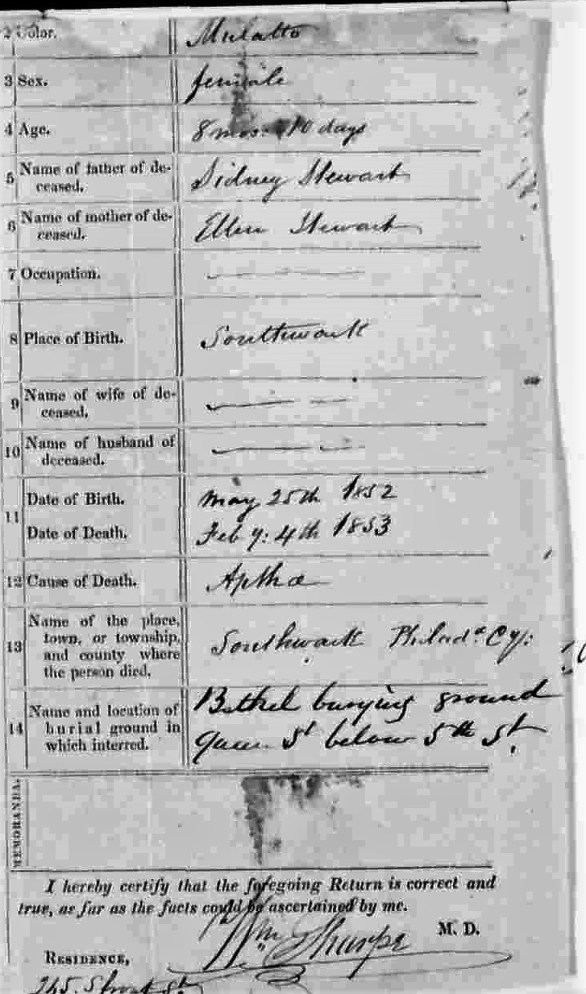 2 Color. Mulatto
3 Sex. female
4 Age. 8 mos. 10 days
5 Name of father of de-
ceased. Sidney Stewart
6 Name of mother of de-
ceased. Ellen Stewart
7 Occupation.
8 Place of Birth. Southwark
9 Name of wife of de-
ceased.
10 Name of husband of
deceased.
11 Date of Birth. May 25th 1852
Date of Death. Feby. 4th 1853
12 Cause of Death. Apthæ
13 Name of the place,
town, or township,
and county where
the person died. Southwark Philada Cy:
14 Name and location of
burial ground in
which interred. Bethel burying ground
Queen St below 5th St.
MEMORANDA.
I hereby certify that the foregoing Return is correct and
true, as far as the facts could be ascertained by me.
Wm Sharpe M. D.
RESIDENCE,
St.